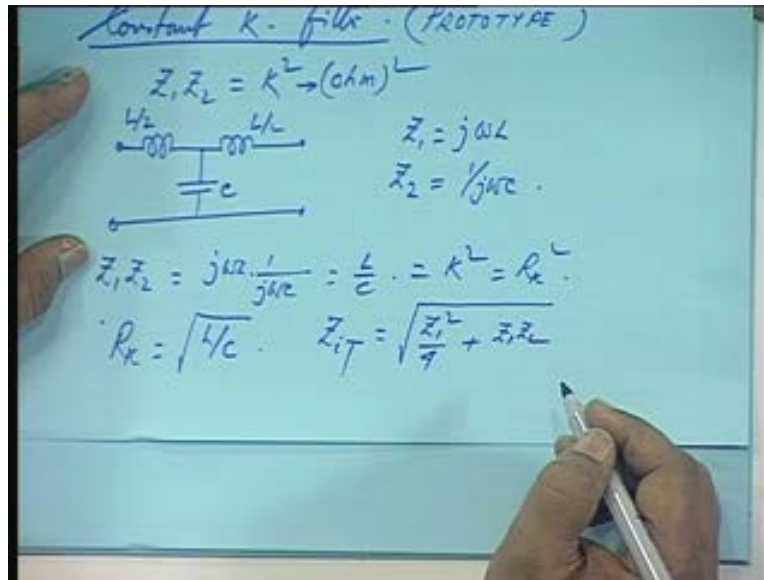 Constant K. filter. (PROTOTYPE)
Z₁Z₂ = K² → (ohm)²
L/2 L/2
Z₁ = jωL
C
Z₂ = 1/jωc.
Z₁Z₂ = jωL · 1/jωc = L/C. = K² = R_K².
R_K = √L/C. Z_iT = √(Z₁²/4 + Z₁Z₂)